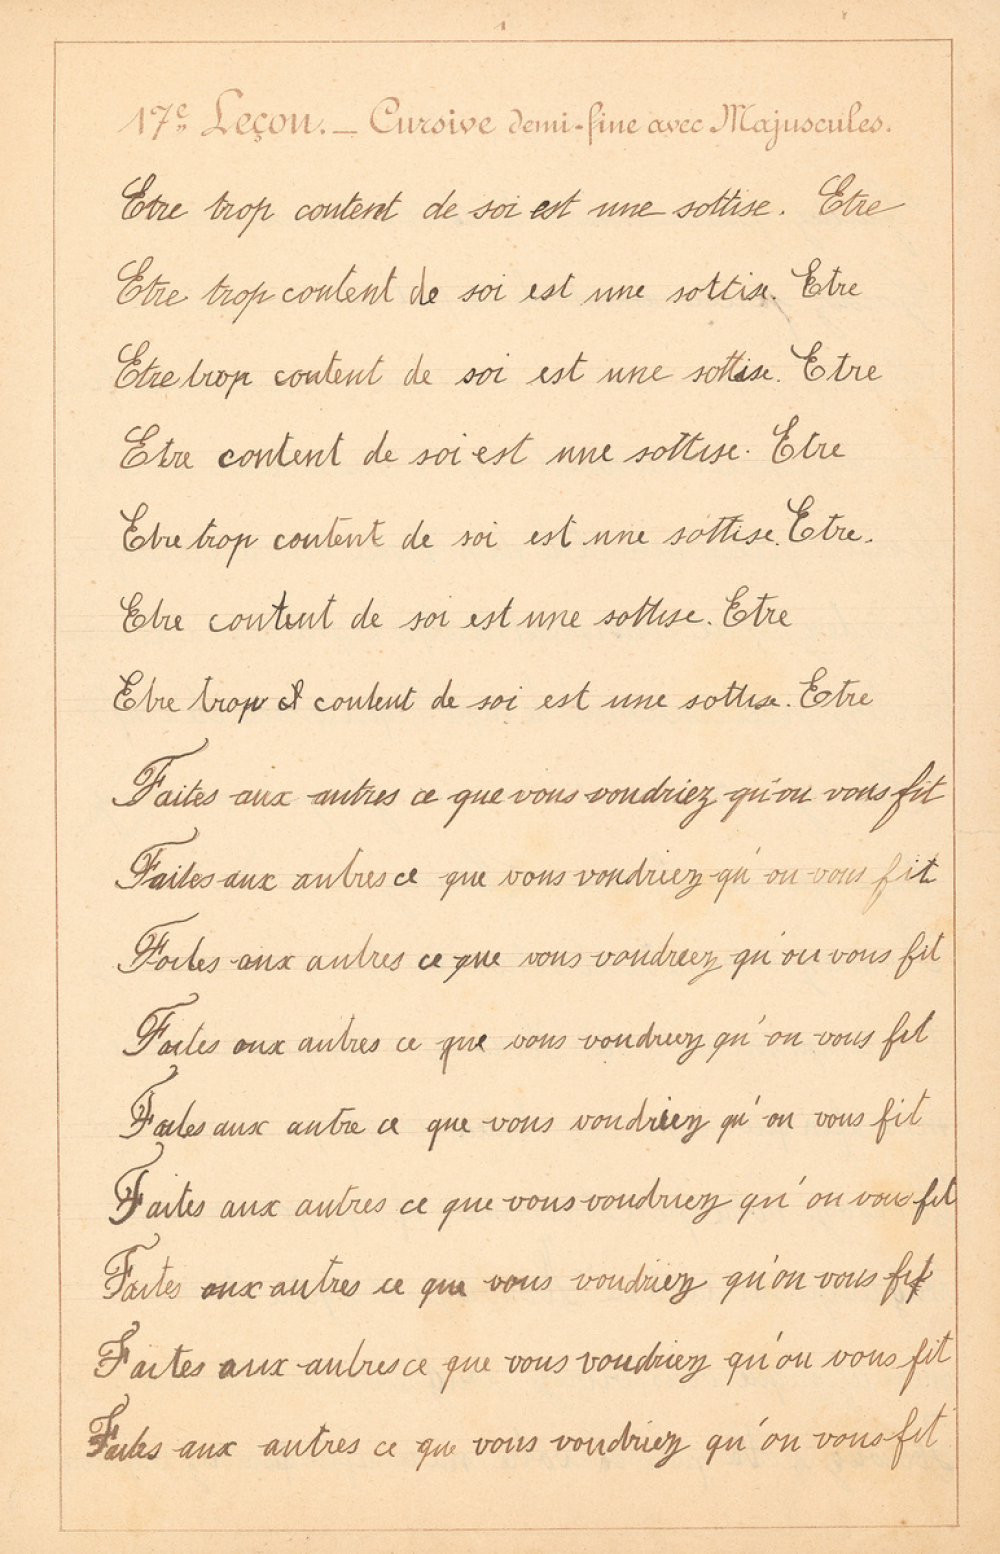 17e Leçon. — Cursive demi-fine avec Majuscules.
Etre trop content de soi est une sottise. Etre
Etre trop content de soi est une sottise. Etre
Etre trop content de soi est une sottise. Etre
Etre content de soi est une sottise. Etre
Etre trop content de soi est une sottise. Etre.
Etre content de soi est une sottise. Etre
Etre trop content de soi est une sottise. Etre
Faites aux autres ce que vous voudriez qu'on vous fit
Faites aux autres ce que vous voudriez qu'on vous fit
Faites aux autres ce que vous voudriez qu'on vous fit
Faites aux autres ce que vous voudriez qu'on vous fit
Faites aux autre ce que vous voudriez qu'on vous fit
Faites aux autres ce que vous voudriez qu'on vous fit
Faites aux autres ce que vous voudriez qu'on vous fit
Faites aux autres ce que vous voudriez qu'on vous fit
Faites aux autres ce que vous voudriez qu'on vous fit